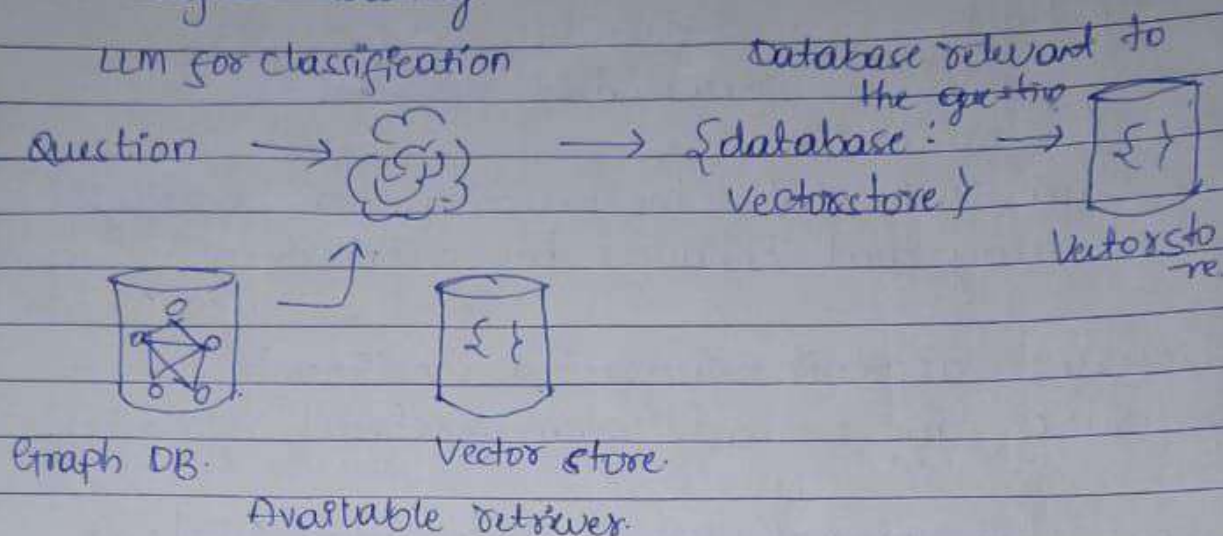 LLM for classification
Database relevant to
the question
Question → → {database: →
Vectorstore}
{ }
Vectorsto
re
{ }
Graph DB.
Vector store.
Available retriever.